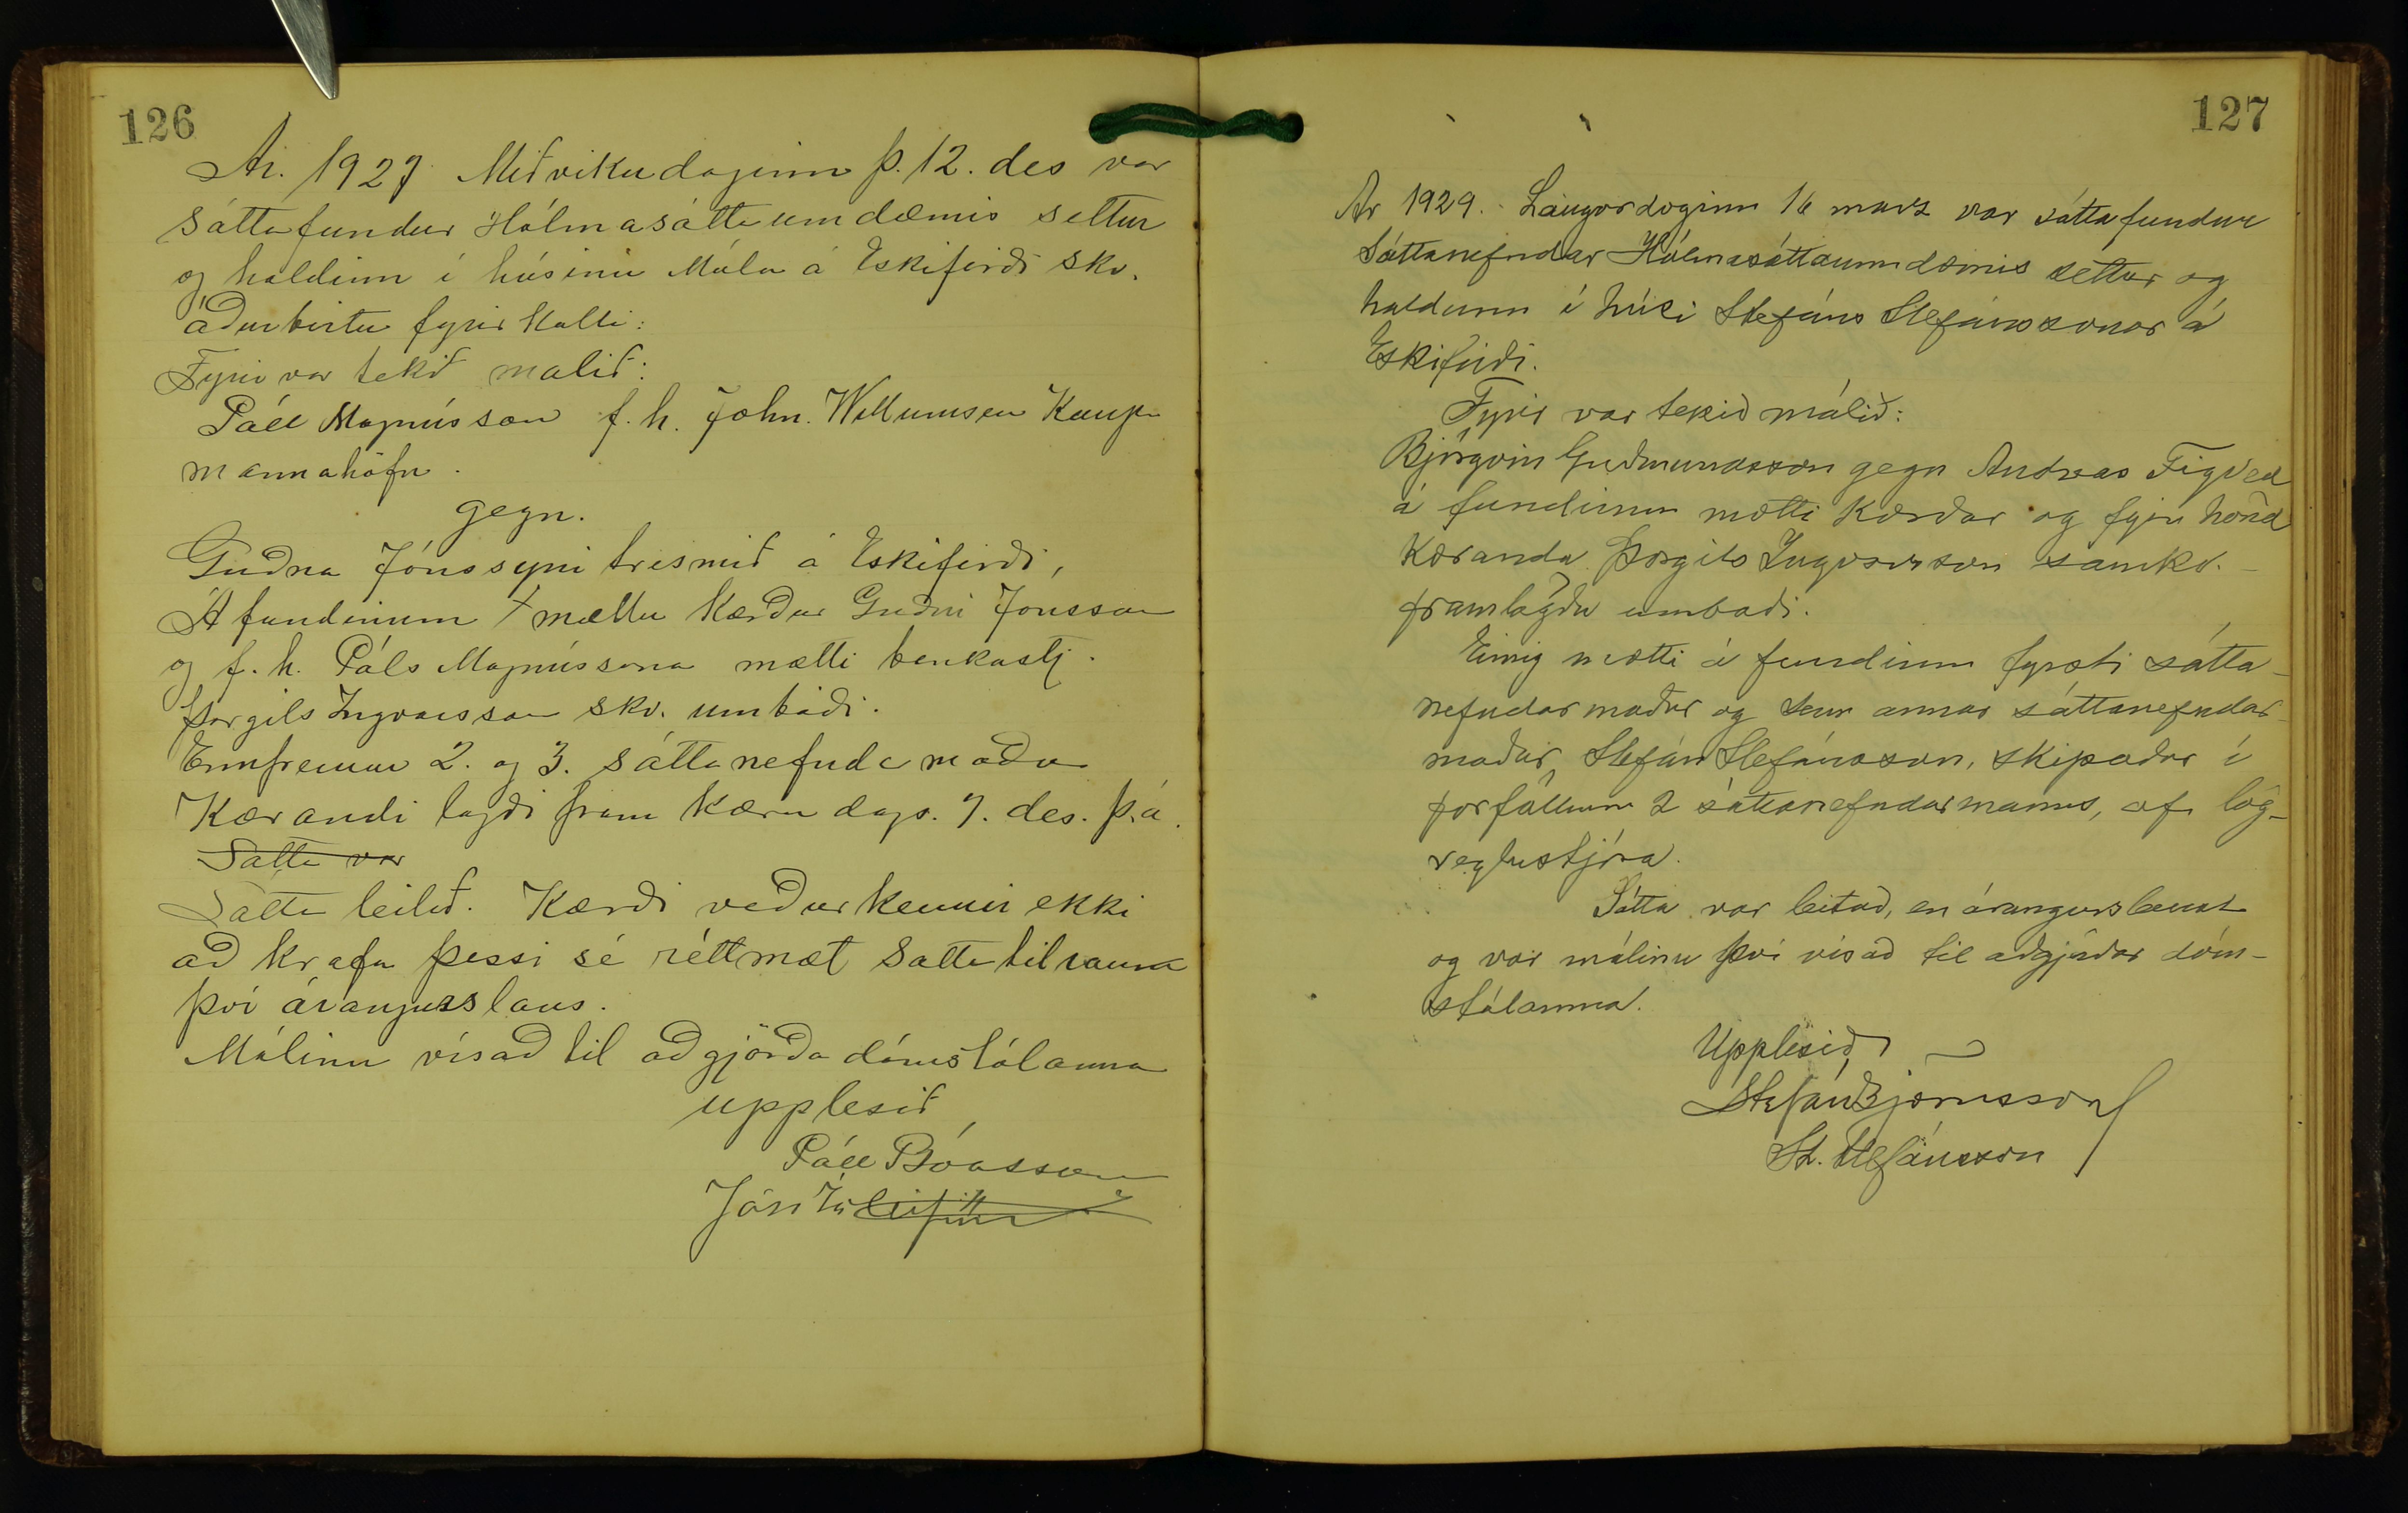 126
Ár. 1927 Miðvikudaginn þ. 12. des var
sáttafundur Hólmasáttaumdæmis settur
og haldinn í húsinu Múla á Eskifirði skv.
áðurbirtu fyrirkalli:
Fyrir var tekið malið:
Páll Magnússon f. h. John. Willumsen Kaup-
mannahöfn.
gegn.
Guðna Jónssyni trésmið á Eskifirði,
Á fundinum + mættu Kærður Guðni Jonsson
og f. h. Páls Magnússona mætti bankastj.
Þorgils Ingvarsson skv. umboði.
Ennfremur 2. og 3. sáttanefnda maður
Kærandi lagði fram kæru dags. 7. des. þ.á.
Satta var
Satta leitað. Kærði veðurkennir ekki
að krafa þessi sé réttmæt Satta tilraun
því árangurslaus.
Málinu vísað til aðgjörða dómstólanna
upplesið
Páll Bóasson
Jón
127
Ár 1929. Laugardaginn 16 mars var sáttafundur
Sáttanefndar Hólmasáttaumdæmis settur og
haldinn í húsi Stefáns Stefánssonar á
Eskifirði.
Fyrir var tekið málið:
Björgvin Guðmundsson gegn Andreas Figved
á fundinum mætti Kærður og fyrir hönd
Kæranda Þorgils Ingvarsson samkv.
framlögðu umboði.
Einig mætti á fundinn fyrsti sátta-
nefndarmaður og sem annar sáttanefndar-
maður, Stefán Stefánsson, skipaður í
forföllum 2 sáttanefndarmanns, af lög-
reglustjóra.
Sátta var leitað, en árangurslaust
og var málinu því vísað til aðgjörðar dóm-
stólanna.
Upplesið
Stefán Björnsson
St. Stefánsson